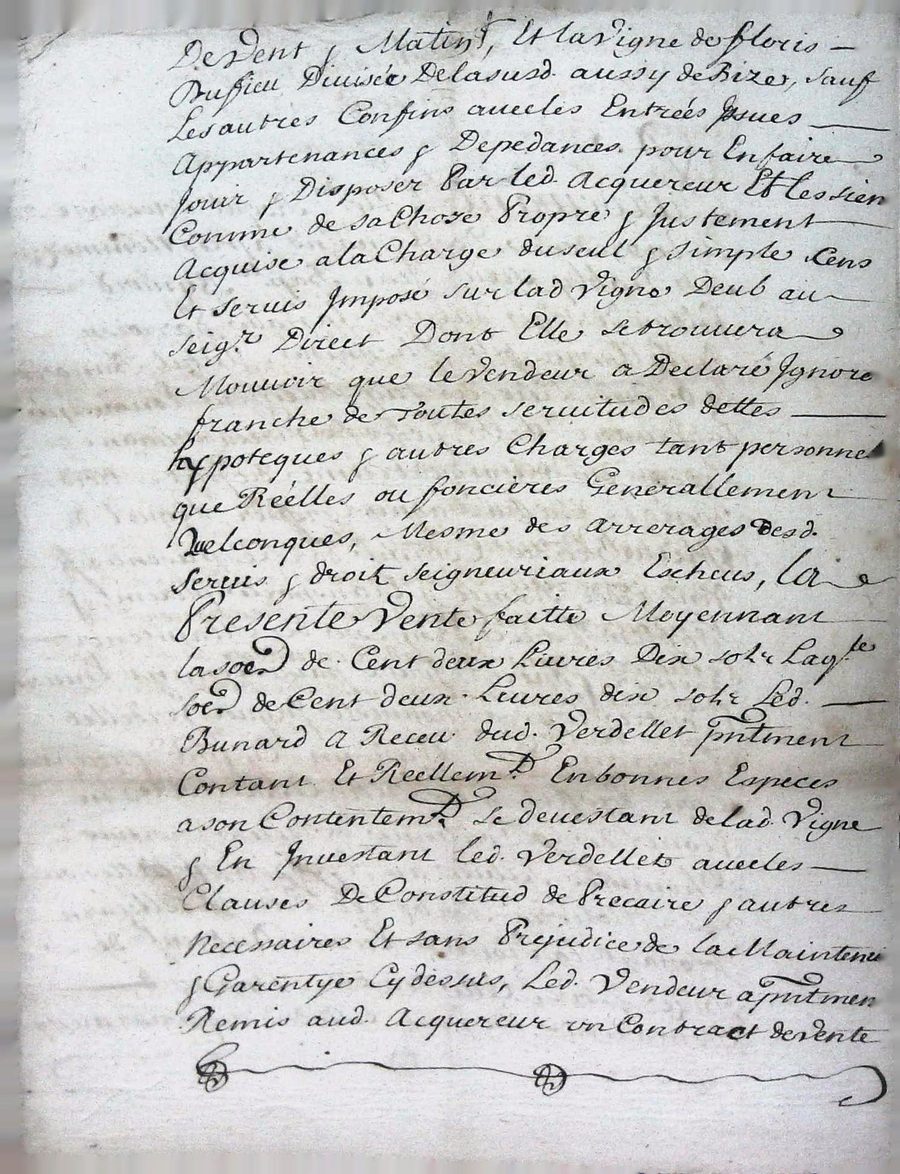 De Vent & Matin, Et la Vigne de floris —
Divisée De la susd. aussy de Bize, sauf
Les autres Confins avec les Entrées Jssues —
Appartenances & Depedances pour En faire
Jouir & Disposer Par led. Acquereur Et les sien
Comme de sa Chose Propre & Justement
Acquise a la Charge du seul & simple Cens
Et servis Jmposé sur lad Vigne Deub au
seigr. Direct Dont Elle se trouvera
Mouvoir que le Vendeur a Declaré Jgnore
franche de toutes servitudes dettes —
hyppoteques & autres Charges tant personnel
que Réelles ou foncieres Generallement
Quelconques, Mesme des arrerages Desd.
servis & droit seigneuriaux Escheus, la
Presente Vente faitte Moyennant
la de Cent deux Livres Dix sols Laqlle
de Cent deux Livres dix sols Led. —
Bunard A Receu dud. Verdellet pntment
Contant Et Reellemt. En bonnes Especes
a son Contentemt. se devestant de lad. Vigne
& En Jnvestant led. Verdellet avec les —
Clauses De Constitud de Precaire & autres
Necessaires Et sans Prejudice de la Mainteni
& Garentye Cy dessus, Led. Vendeur a pntmen
Remis aud. Acquereur vn Contract de vente